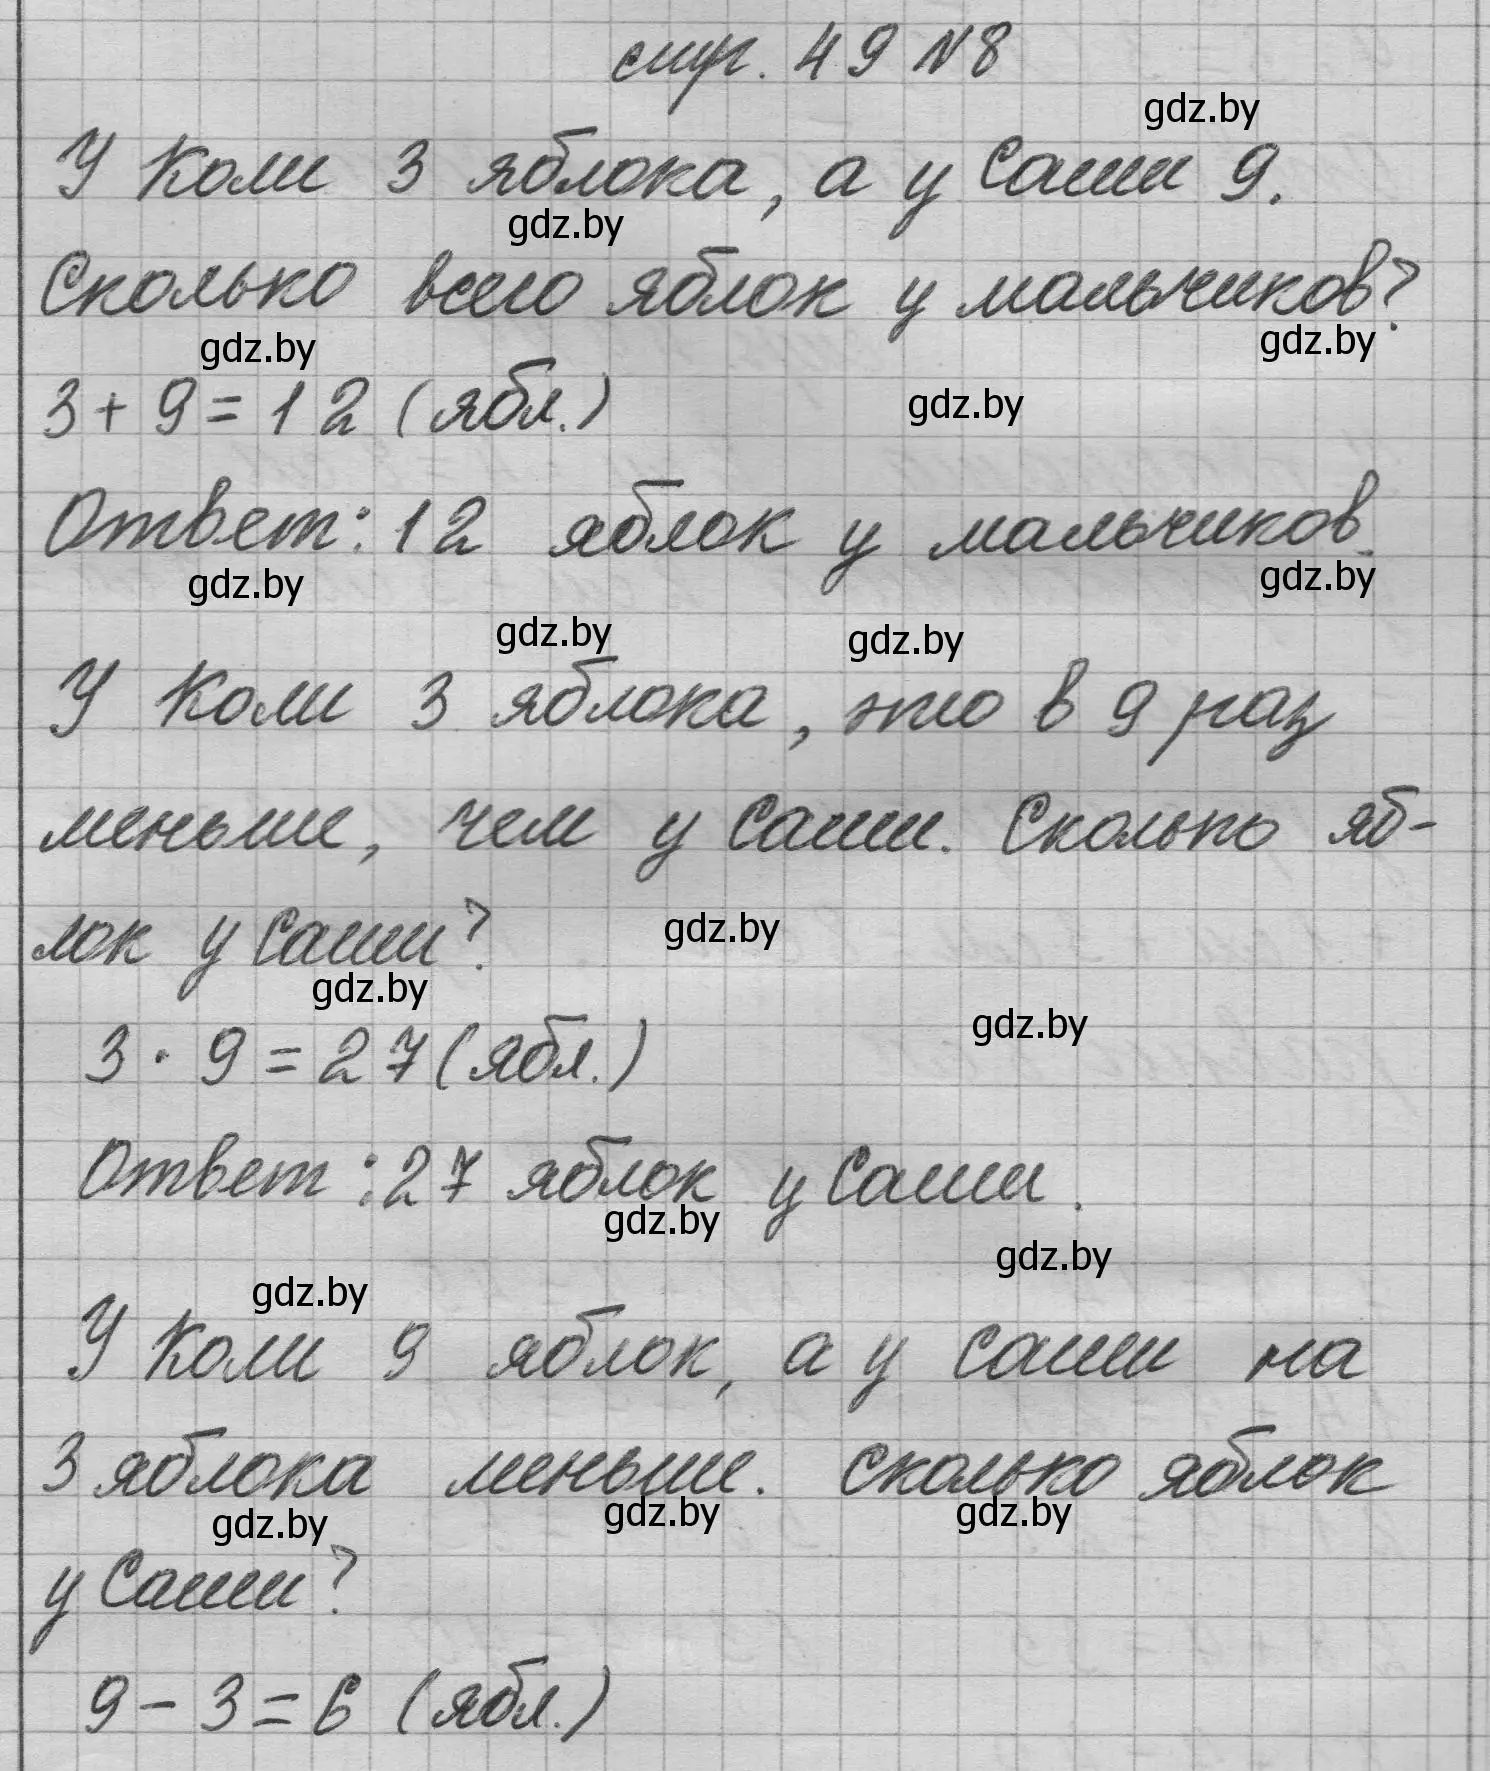 стр. 49 №8
gdz.by
У Коли 3 яблока, а у Саши 9.
gdz.by
Сколько всего яблок у мальчиков?
gdz.by gdz.by
3 + 9 = 12 (ябл.) gdz.by
Ответ: 12 яблок у мальчиков.
gdz.by gdz.by
gdz.by gdz.by
У Коли 3 яблока, это в 9 раз
меньше, чем у Саши. Сколько яб-
лок у Саши? gdz.by
gdz.by gdz.by
3 · 9 = 27 (ябл.)
Ответ: 27 яблок у Саши.
gdz.by
gdz.by
gdz.by
У Коли 9 яблок, а у Саши на
3 яблока меньше. Сколько яблок
gdz.by gdz.by gdz.by
у Саши?
9 - 3 = 6 (ябл.)